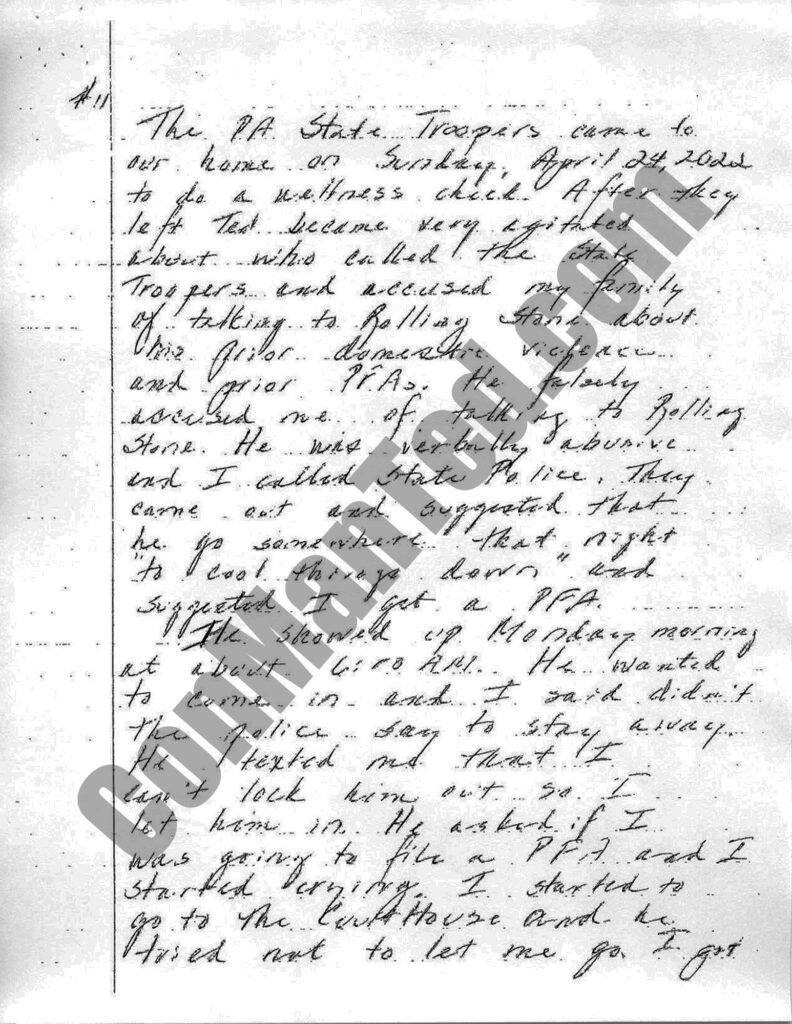 #11
The PA State Troopers came to
our home on Sunday, April 24, 2022
to do a wellness check. After they
left Ted became very agitated
about who called the State
Troopers and accused my family
of talking to Rolling Stone about
his prior domestic violence
and prior PFAs. He falsely
accused me of talking to Rolling
Stone. He was verbally abusive
and I called State Police. They
came out and suggested that
he go somewhere that night
"to cool things down" and
suggested I get a PFA.
He showed up Monday morning
at about AM. He wanted
to come in and I said didn't
the police say to stay away.
He texted me that I
can't lock him out so I
let him in. He asked if I
was going to file a PFA and I
started crying. I started to
go to The CourtHouse and he
tried not to let me go. I got
ConManTed.com